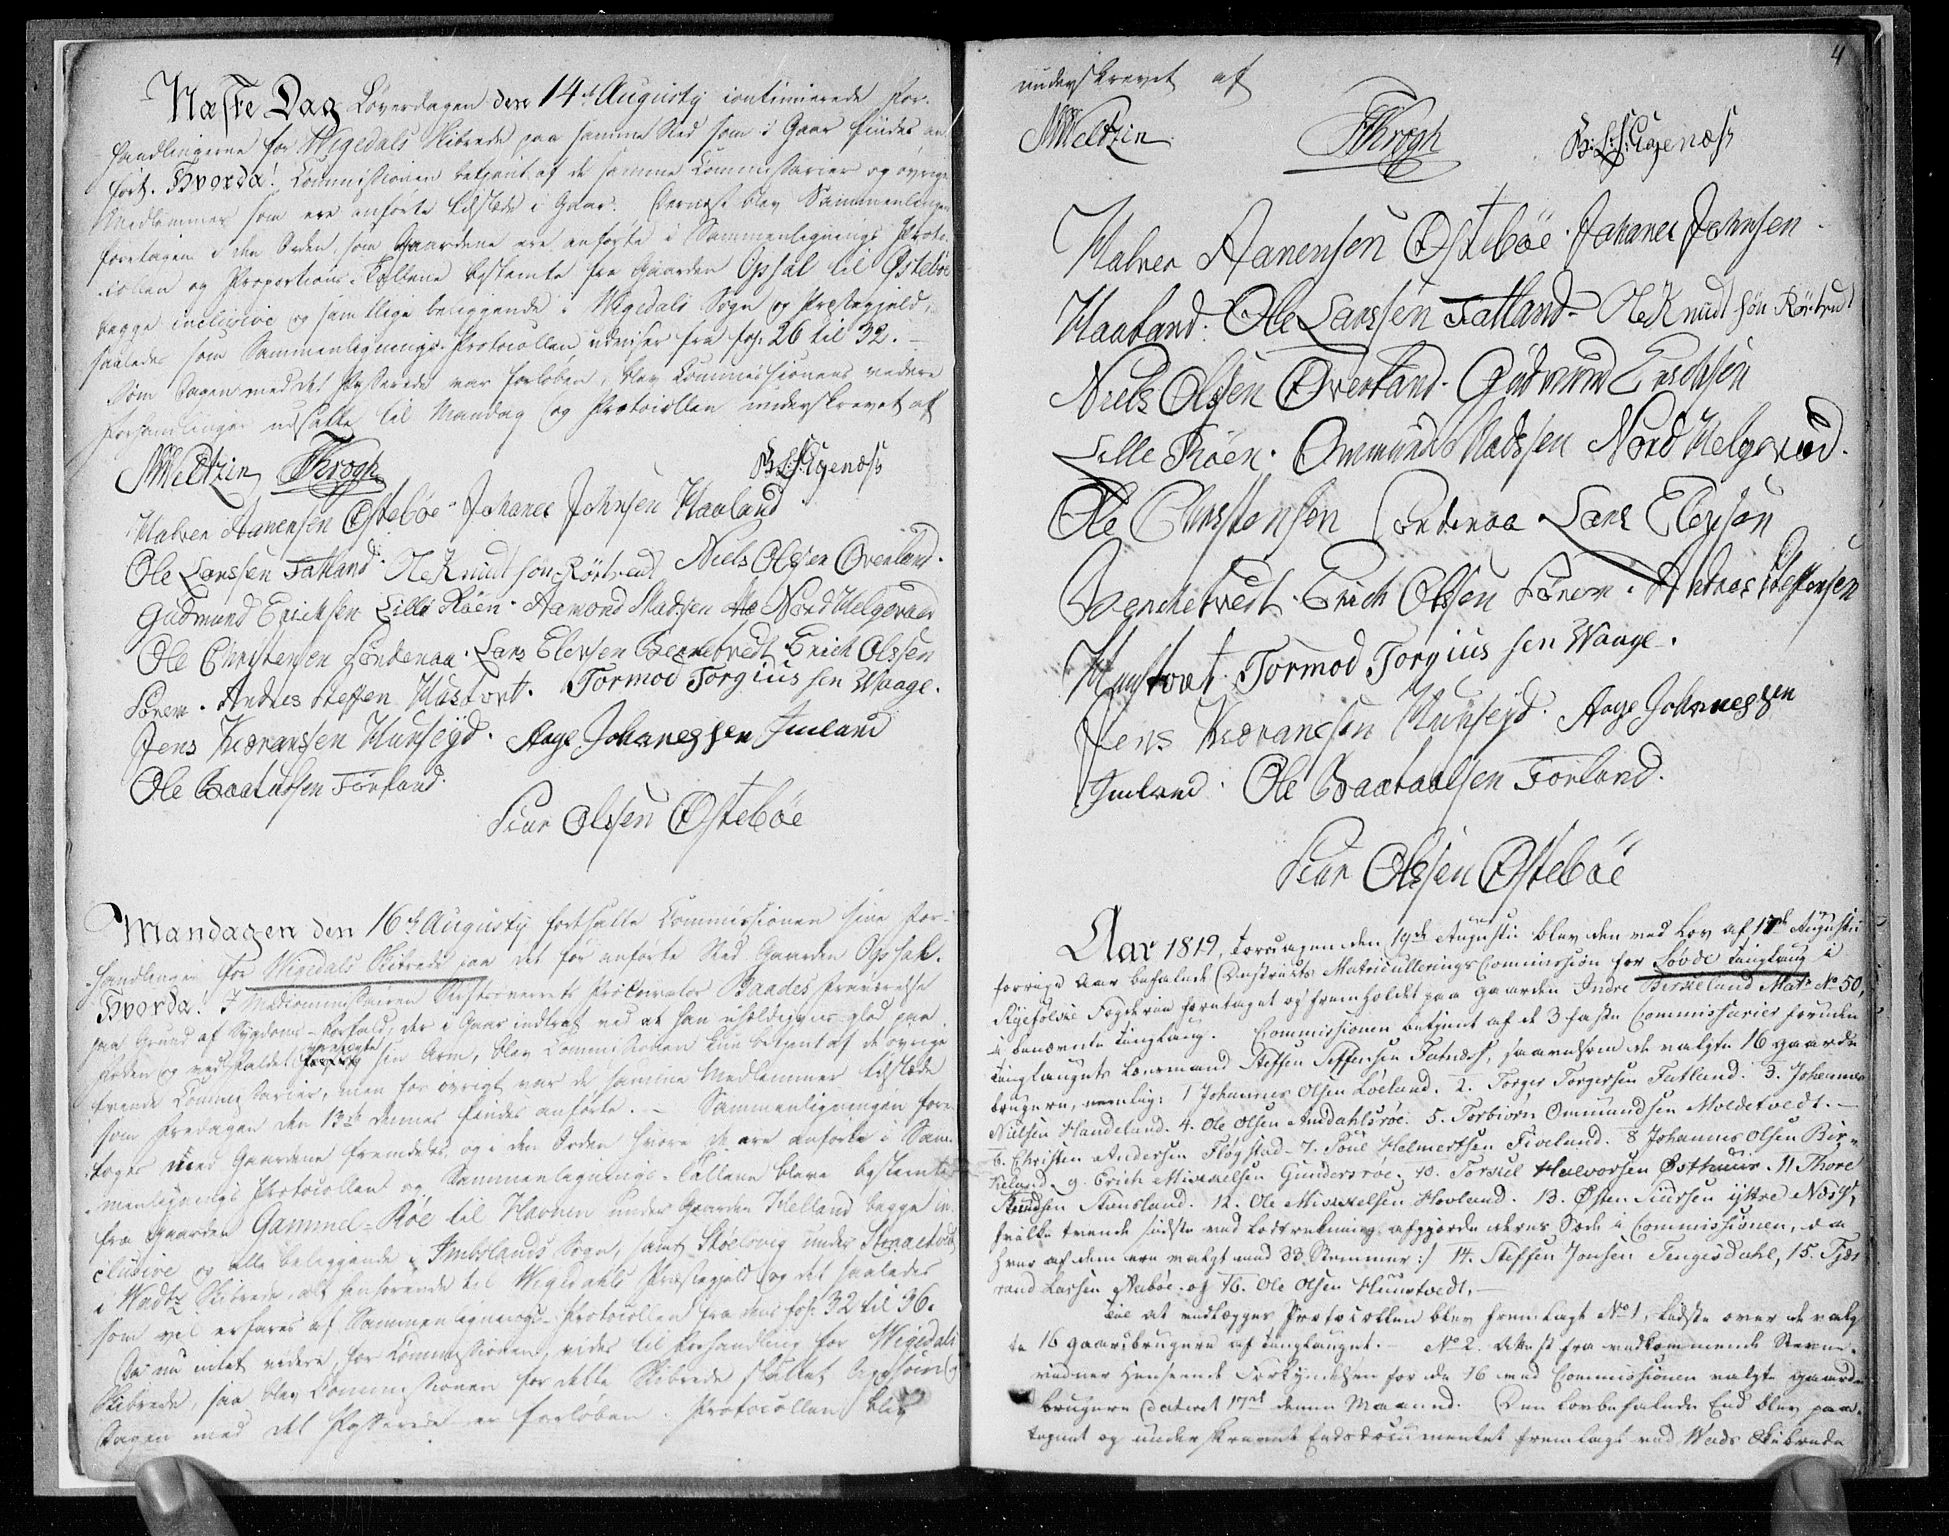 Næste Dag Løverdagen den 14de Augusty continuerede For-
handlingerne for Wigedals Skibrede paa samme Sted som i Gaar findes an-
ført. Hvorda! Commissionen betjent af de samme Commissarier og øvrige
Medlemmer som ere anførte tilstede i Gaar. Dernest blev Sammenligningen
foretagen i den Orden som Gaardene ere anførte i Sammenlignings Proto-
collen og Proportions-Tallene bestemte fra Gaarden Opsal til Østebøe
begge inclusive og samtlige beliggende i Wigedals Sogn og Præstegjeld,
saaledes som Sammenlignings-Protocollen udviser fra fol. 26 til 32. –
Som Dagen med det Passerede var forløben, blev Commissionens videre
Forhandlinger udsatte til Mandag og Protocollen underskrevet af
MWeltzin FKrogh
Halvor Aanensen Østebøe Johanes Johnsen Haaland
Ole Larssen Fatland. Ole Knudtson Rörtvedt Niels Olssen Overland.
Gudmund Ericksen Lille Röen. Aamond Madssen Nord Helgevold
Ole Christensen Søndenaa. Lars Elevsen Berretvedt Erich Olssen
Sörem. Andres Steffen Hustoft. Tormod Torgiussen Waage.
Jens Hworanssen Hunseyd. Aage Johanessen Imland
Ole Baatulssen Førland.
Siur Olssen Østebøe
Mandagen den 16de Augusty fortsatte Commissionen sine For-
handlinger for Wigedals Skibrede paa det før anførte Sted Gaarden Opsahl.
Hvorda! I Medcommissairen Procurator Baades fraværelse
paa Grund af Sygdoms-Forfald, der i Gaar indtraf ved at han uheldigviis gled paa
Foden og ved Faldet sin Arm, blev Commissionen kun betjent af de øvrige
trende Commissarier, men for øvrigt var de samme Medlemmer tilstæde
som Fredagen den 13de dennes findes anførte. – Sammenligningen fore-
toges med Gaardene fremdeles, og i den Orden hvori de ere anførte i Sam-
menlignings Protocollen og Sammenlignings-Tallene bleve bestemte
fra Gaarden Gammel-Röe til Havnen under Gaarden Helland begge in-
clusive og alle beliggende i Imbslands Sogn, samt Skoelsvig under
i Wadtz Skibrede, alt henhørende til Wigedahls Præstegjeld og det saaledes
som vil erfares af Sammenlignings-Protocollen fra dens fol. 32 til 36.
Da nu intet videre for Commissionen vides til Forhandling for Wigedals
Skibrede, saa blev Commissionen for dette Skibrede sluttet
Dagen med det Passerede er forløben. Protocollen blev
4
underskrevet af
MWeltzin FKrogh
Halvor Aanensen Østebøe. Johanes Johnsen
Haaland. Ole Larssen Fatland – Ole Knudtsøn Rörtvedt
Niels Olssen Overland. Gudmund Ericksen
Lille Röen. Ommund Madssen Nord Helgevold.
Ole Christensen Söndenaa Lars Elevsen
Berretvedt. Erich Olssen Sörem. Andres Steffensen
Hustoft. Tormod Torgiussen Waage.
Jens Hworanesen Hunseyd. Aage Johannessen
Imland. Ole Baataalsen Førland.
Siur Olssen Østebøe
Aar 1819, Torsdagen den 19de Augusti blev den ved Lov af 17de Augusti
forrige Aar befalede Districts Matriculerings Commission for Søvde Tinglaug i
Ryefølke Fogderie foretaget og fremholdet paa Gaarden Indre Birkeland Matr. No 50,
i benævnte Tinglaug. Commissionen betjent af de 3 faste Commissarier foruden
Tinglaugets Lensmand Steffen Steffensen Fatnæss, saavelsom de valgte 16 gaard-
brugere, nemlig: 1 Johannes Olsen Löeland. 2. Torger Torgersen Fatland. 3. Johannes
Nielsen Handeland. 4. Ole Olsen Amdahlsröe. 5. Torbiørn Ommundsen Moldetvedt. –
6. Christen Andersen Flögstad – 7. Poul Helmertsen Fiveland. 8 Johannes Olsen Bir-
keland. 9. Erich Mikkelsen Gundersröe. 10. Torkiel Halvorsen Østhuus. 11 Thore
Knudsen Stonsland. 12. Ole Mikkelsen Hovland. 13. Østen Siursen yttre Næss,
hvilke trende sidste ved Lodtrækning afgjorde deres Sæde i Commissionen, da
hver af dem ere valgt med 33 Stemmer :/ 14. Steffen Jonsen Tengesdahl, 15. Tjøs-
rand Larsen Aabøe. og 16. Ole Olsen Huustvedt, –
Til at vedlægges Protocollen blev fremlagt No 1, Liste over de valg-
te 16 gaardbrugere af Tinglauget. – No 2. Attest fra vedkommende Stevne-
vidner Henseende Forkyndelsen for de 16 ved Commissionen valgte gaard-
brugere dateret 17de denne Maaned. Den lovbefalede Eed blev paa-
tegnet og underskrevet Eedsdocumentet fremlagt ved Wads Skibrede